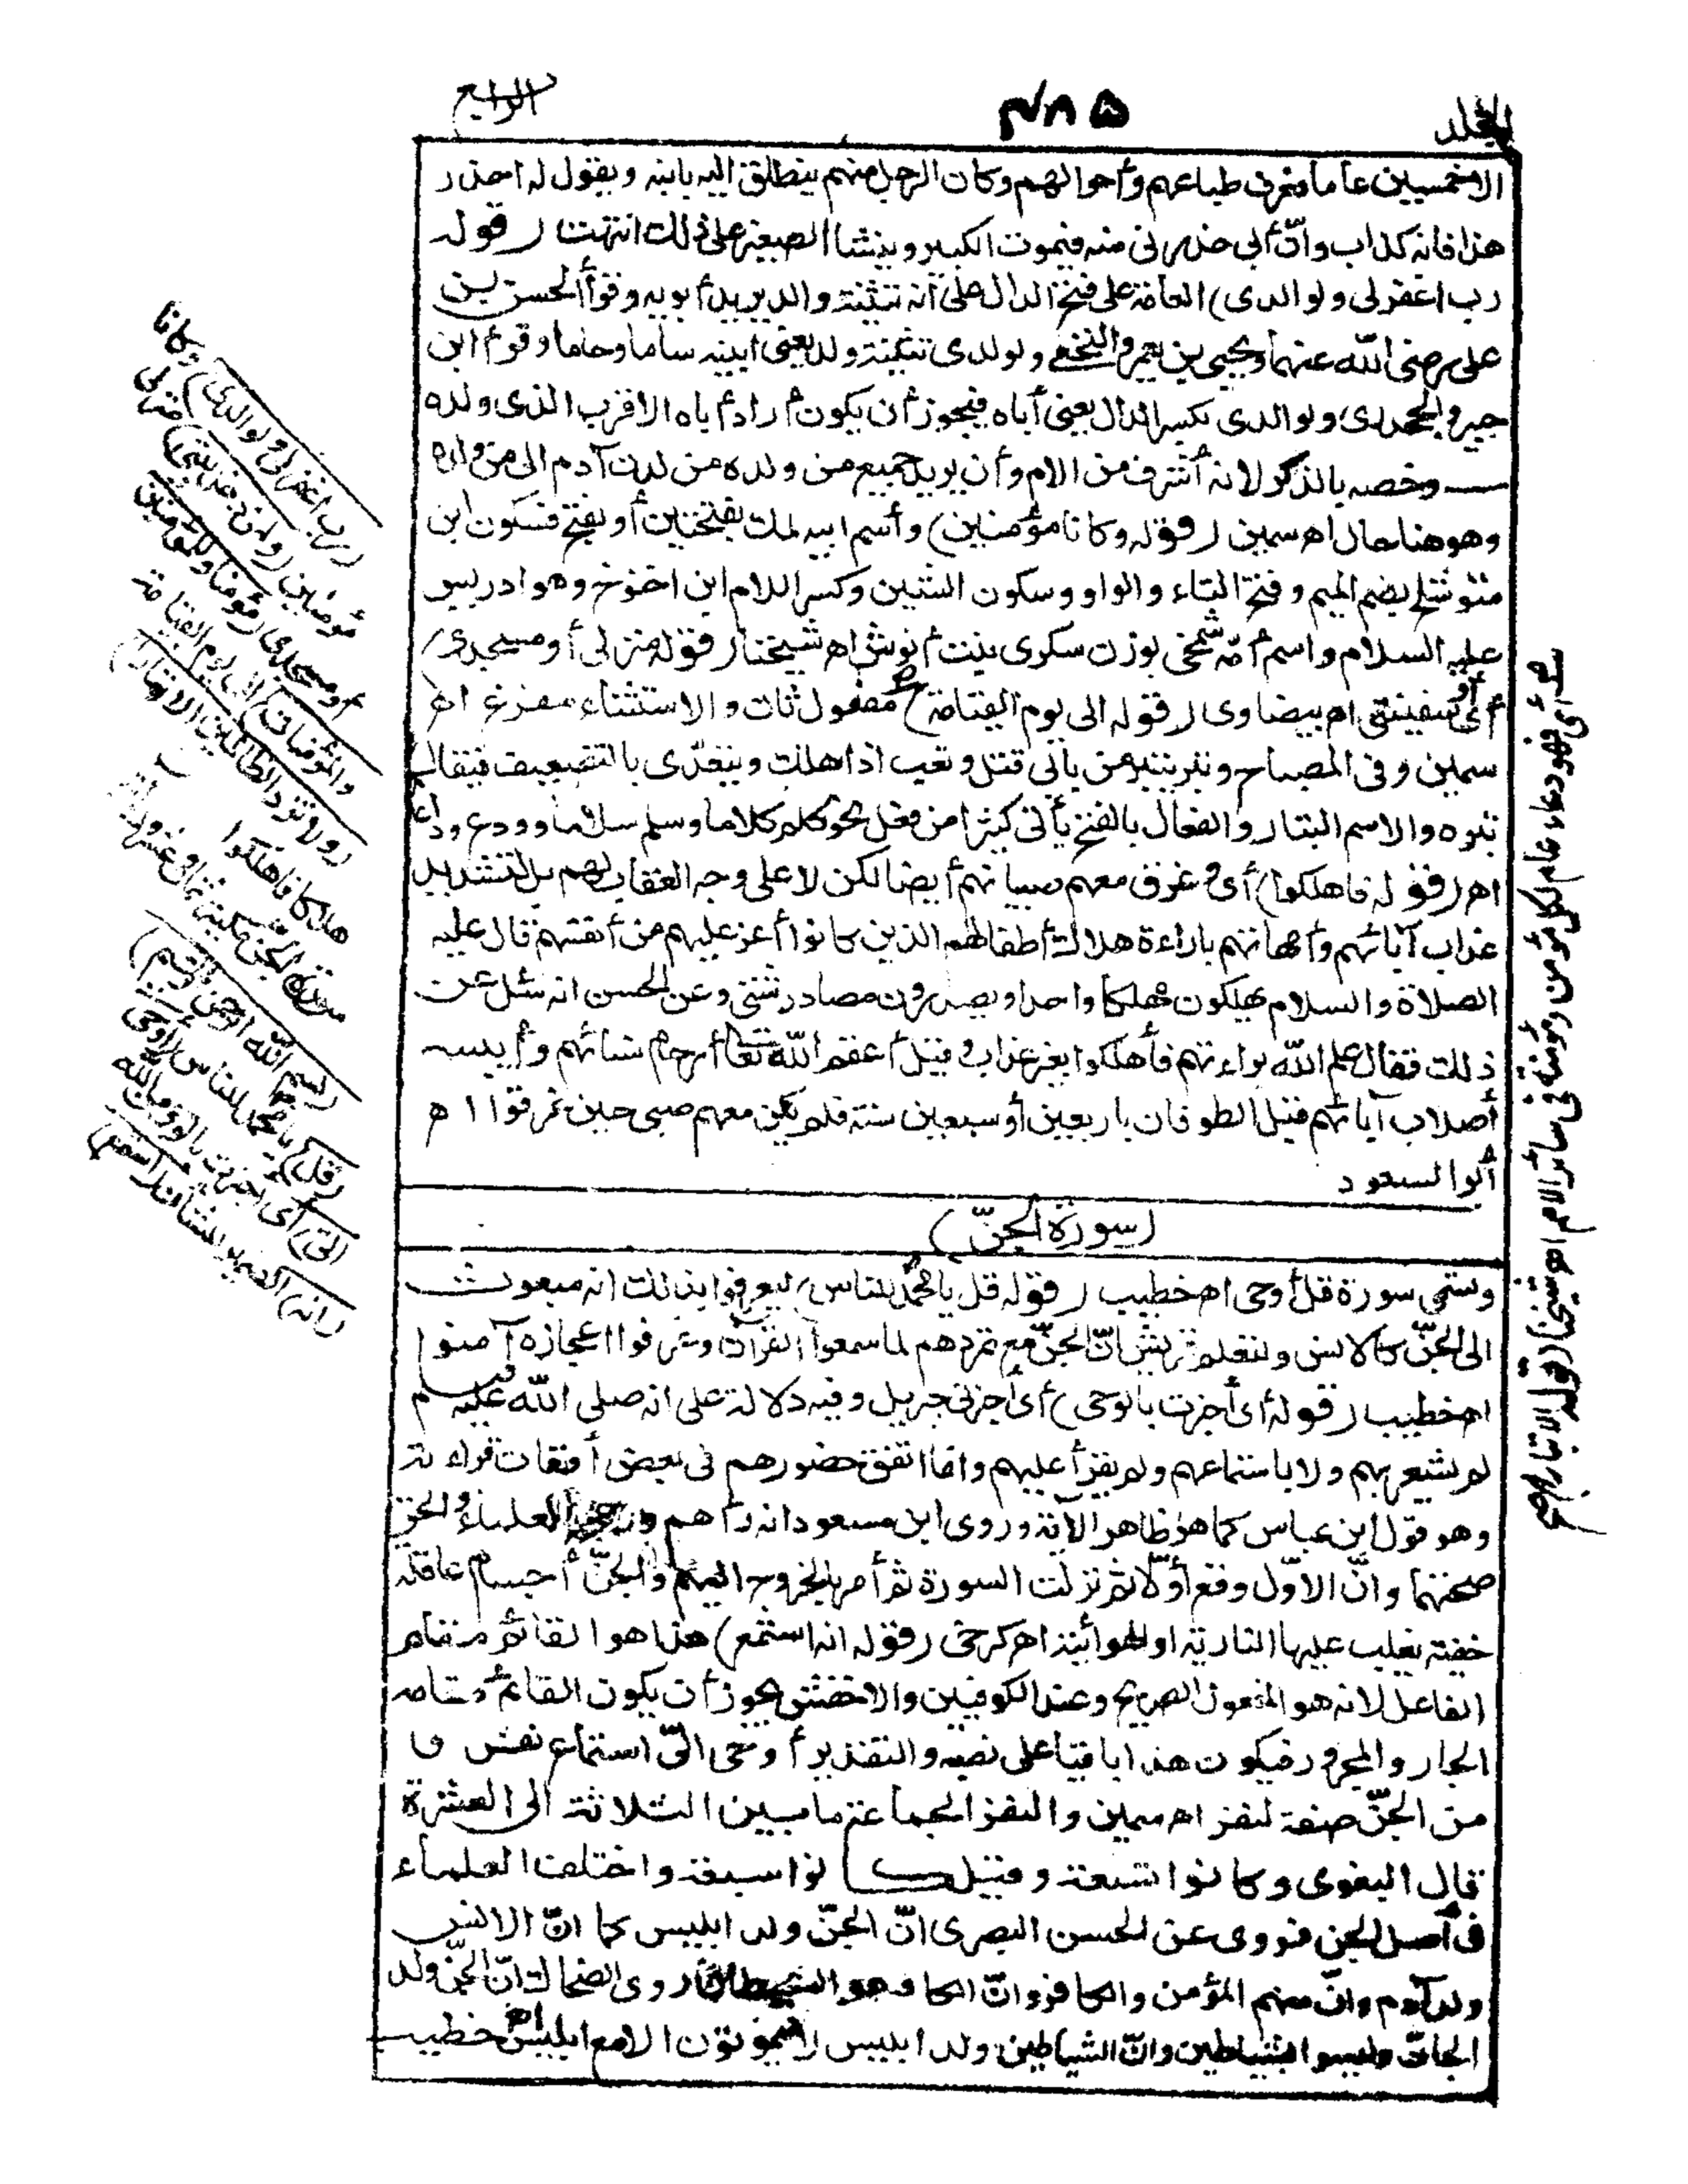 المجلد
٤٨٥
الرابع
الاخمسين عاما فعرف طباعهم وأحوالهم وكان الرجل منهم ينطلق اليه بابنه ويقول له احذر
هذا فانه كذاب وانّ أبى حذرنى منه فيموت الكبير وينشأ الصغير على ذلك انتهت (قوله
رب اغفرلى ولوالدى) العامة على فتح الدال على أنه تثنية والد يريد أبويه وقرأ الحسن بن
على رضى الله عنهما ويحيى بن يعمر والنخعى ولولدى تثنية ولد يعنى ابنيه ساما وحاما وقرأ ابن
جبير والجحدرى ولوالدى بكسر الدال يعنى أباه فيجوز أن يكون أراد أباه الاقرب الذى ولده
وخصه بالذكر لانه أشرف من الام وأن يريد جميع من ولده من لدن آدم الى من ولده
وهو هنا حال اه سمين (قوله وكانا مؤمنين) وأسم ابيه لمك بفتحتين أو بفتح فسكون ابن
متوشلح بضم الميم وفتح التاء والواو وسكون الشين وكسر اللام ابن اخنوخ وهو ادريس
عليه السلام واسم أمّه شمخى بوزن سكرى بنت أنوش اه شيخنا (قوله منزلى أو مسجدى)
أى أو سفينتى اه بيضاوى (قوله الى يوم القيامة) مفعول ثان والاستثناء مفرغ اه
سمين وفى المصباح وتبر يتبر من بابى قتل وتعب اذا هلك ويتعدّى بالتضعيف فيقال
تبره والاسم التبار والفعال بالفتح يأتى كثيرا من فعل نحو كلم كلاما وسلم سلاما وودع وداعا
اه (قوله فاهلكوا) أى وغرق معهم صبيانهم أيضا لكن لا على وجه العقاب لهم بل لتشديد
عذاب آبائهم وأمهاتهم باراءة هلاك أطفالهم الذين كانوا أعز عليهم من أنفسهم قال عليه
الصلاة والسلام يهلكون مهلكا واحدا ويصدرون مصادر شتى وعن الحسن انه سئل عن
ذلك فقال علم الله براءتهم فأهلكوا بغير عذاب وقيل أعقم الله تعالى أرحام نسائهم وأيبس
أصلاب آبائهم قبل الطوفان باربعين أو سبعين سنة فلم يكن معهم صبى حين غرقوا اه
أبو السعود
(سورة الجنّ)
وتسمى سورة قل أوحى اه خطيب (قوله قل يا محمد للناس) ليعرفوا بذلك انه مبعوث
الى الجنّ كالانس ولتعلم قريش انّ الجنّ مع تمردهم لما سمعوا القرآن وعرفوا اعجازه آمنوا
اه خطيب (قوله أى أخبرت بالوحى) أى أخبرنى جبريل وفيه دلالة على انه صلى الله عليه وسلم
لم يشعر بهم ولا باستماعهم ولم يقرأ عليهم وانما اتفق حضورهم فى بعض أوقات قراءته
وهو قول ابن عباس كما هو ظاهر الآية وروى ابن مسعود انه رآهم ورجحه العلماء والحق
صحتهما وانّ الاوّل وقع أوّلا ثم نزلت السورة ثم أمر بالخروج اليهم والجنّ أجسام عاقلة
خفية يغلب عليها النارية او الهوائية اه كرخى (قوله انه استمع) هذا هو القائم مقام
الفاعل لانه هو المفعول الصريح وعند الكوفيين والاخفش يجوز أن يكون القائم مقامه
الجار والمجرور فيكون هذا باقيا على نصبه والتقدير أوحى الىّ استماع نفر و
من الجنّ صفة لنفر اه سمين والنفر الجماعة ما بين الثلاثة الى العشرة
قال البغوى وكانوا تسعة وقيل كانوا سبعة واختلف العلماء
فى أصل الجن فروى عن الحسن البصرى انّ الجنّ ولد ابليس كما انّ الانس
ولد آدم وانّ منهم المؤمن والكافر وانّ الكافر هو الشيطان وروى الضحاك انّ الجنّ ولد
الجانّ وليسوا بشياطين وانّ الشياطين ولد ابليس لا يموتون الا مع ابليس اه خطيب
(رب اغفرلى ولوالدى) وكانا
مؤمنين (ولمن دخل بيتى) منزلى
أو مسجدى (مؤمنا وللمؤمنين
والمؤمنات) الى يوم القيامة
(ولا تزد الظالمين الا تبارا)
هلاكا فاهلكوا
سورة الجن مكية ثمان وعشرون آية
(بسم الله الرحمن الرحيم)
(قل) يا محمد للناس (أوحى
الىّ) أى أخبرت بالوحى من الله
(انه) الضمير للشأن (استمع)
فهو دعاء عام لكل مؤمن ومؤمنة فى سائر الامم اه شيخنا (قوله الا تبارا)